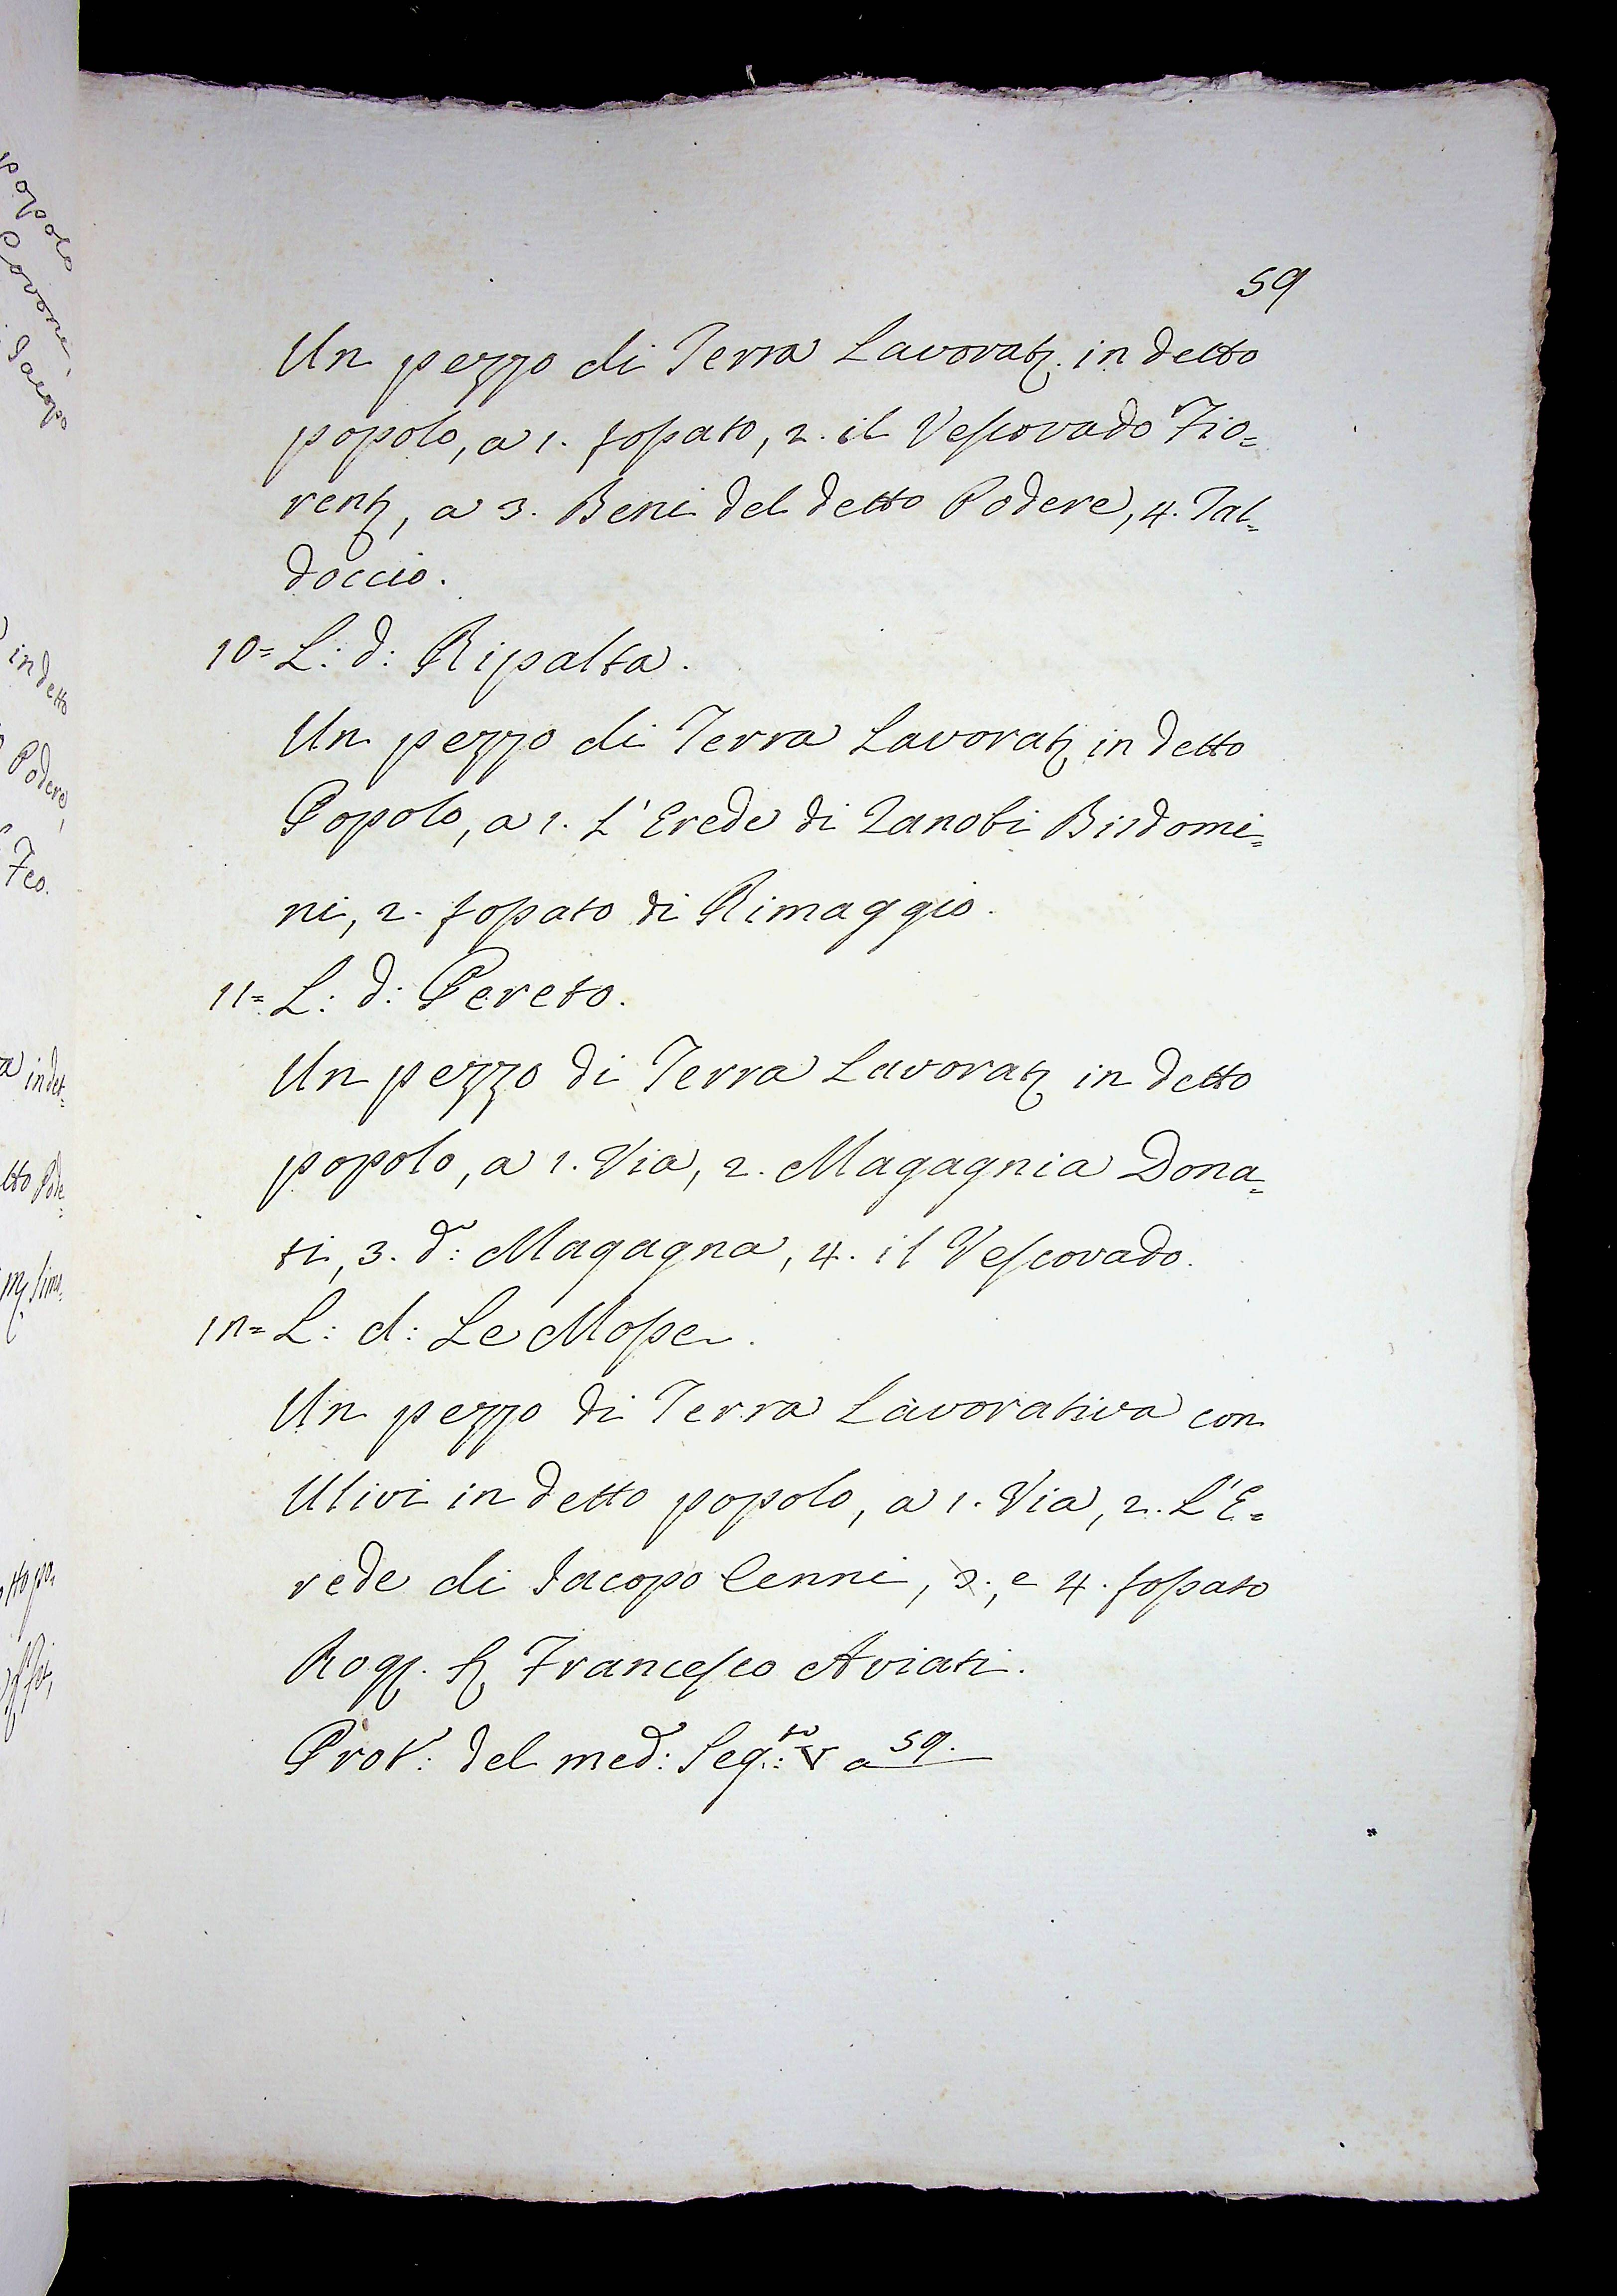 59
Un pezzo di Terra Lavorat. in detto
popolo, a 1. fossato, 2. il Vescovado Fio=
rent, a 3. Beni del detto Podere, 4. Tal=
doccio.
10= L: d: Ripalta.
Un pezzo di Terra Lavorat in detto
Popolo, a 1. L'Erede di Zanobi Bisdomi=
ni, 2. fossato di Rimaggio.
11= L: d: Pereto.
Un pezzo di Terra Lavorat in detto
popolo, a 1. Via, 2. Magagnia Dona=
ti, 3. d: Magagna, 4. il Vescovado.
12= L: d: Le Mosse.
Un pezzo di Terra Lavorativa con
Ulivi in detto popolo, a 1. Via, 2. L'E=
rede di Iacopo Cenni, 3., e 4. fossato
Rog. Francesco Aviati.
Prot: del med: Seg:to V a 59.